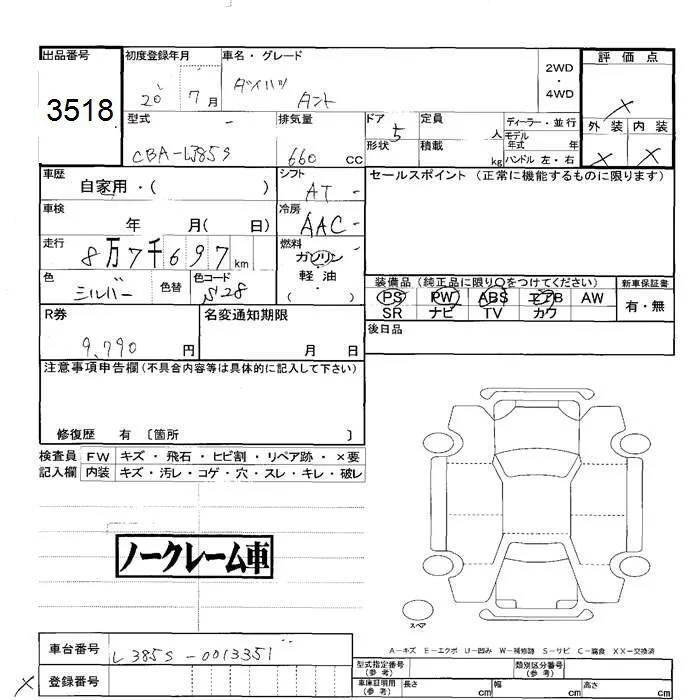 出品番号
3518
初度登録年月
20 7月
車名・グレード
ダイハツ
タント
2WD
・
4WD
評価点
×
外装 内装
× ×
型式
CBA-L385S
排気量
660 cc
ドア 5
形状
定員 人
積載 kg
ディーラー・並行
モデル
年式 年
ハンドル 左・右
車歴
自家用・( )
シフト
AT
セールスポイント (正常に機能するものに限ります)
車検
年 月( 日)
冷房
AAC
走行
8万7千697km
燃料
ガソリン
軽油
( )
色
シルバー
色替
色コード
S28
装備品 (純正品に限り○をつけてください)
PS PW ABS エアB AW
SR ナビ TV カワ
新車保証書
有・無
R券
9,790 円
名変通知期限
月 日
後日品
注意事項申告欄(不具合内容等は具体的に記入して下さい)
修復歴 有 〔箇所 〕
検査員 FW キズ・飛石・ヒビ割・リペア跡・×要
記入欄 内装 キズ・汚レ・コゲ・穴・スレ・キレ・破レ
ノークレーム車
スペア
A-キズ E-エクボ U-凹み W-補修跡 S-サビ C-腐食 XX-交換済
車台番号
L385S-0013351
× 登録番号
型式指定番号
(参考)
類別区分番号
(参考)
車庫証明用
(参考)
長さ cm 幅 cm 高さ cm